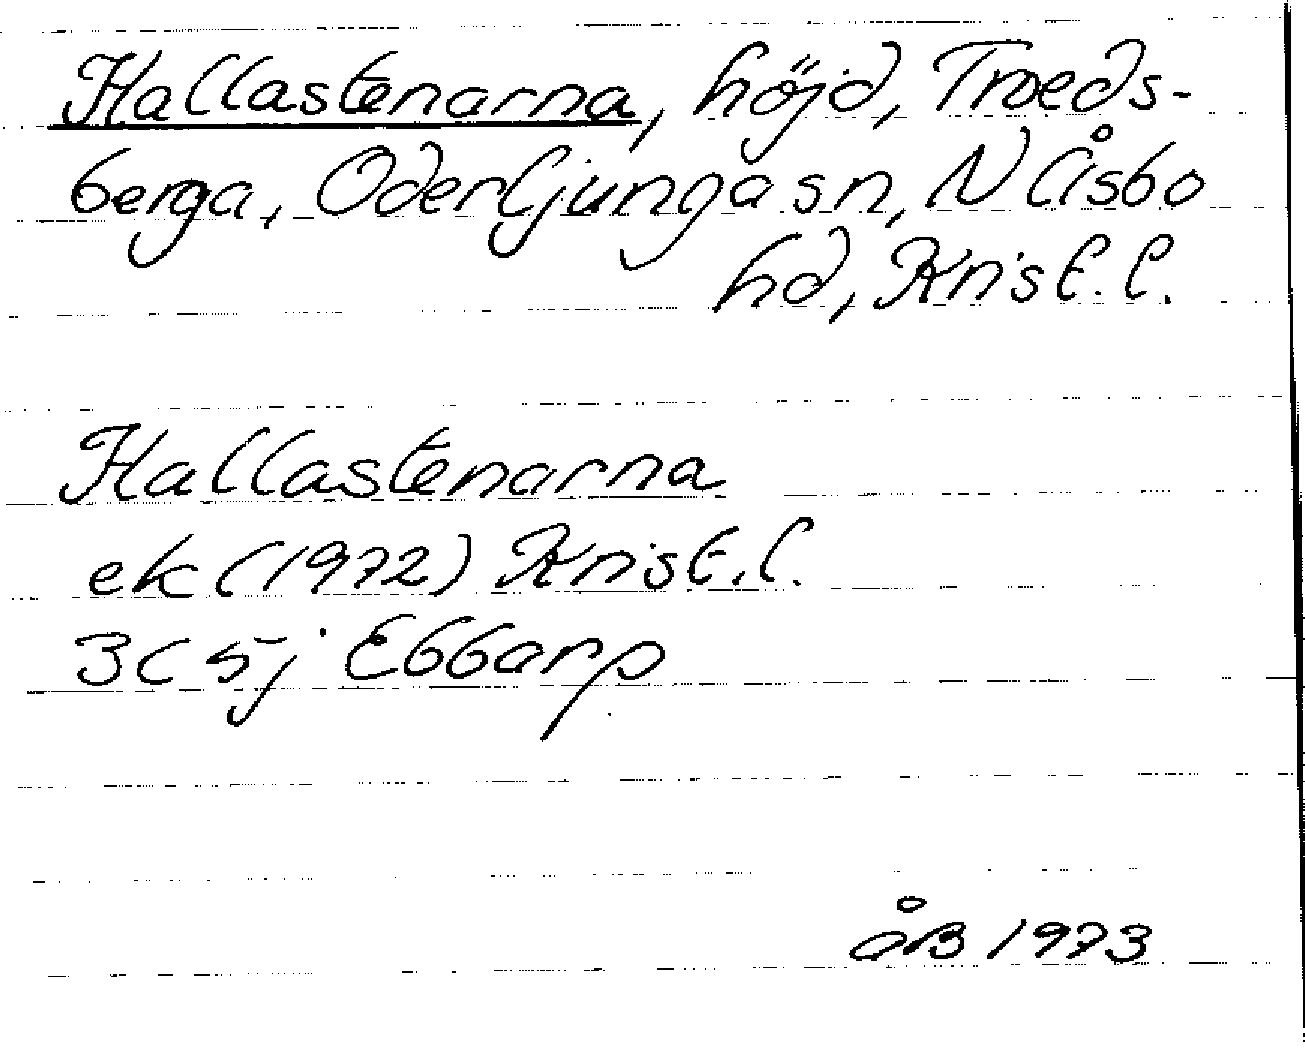 Hallastenarna, höjd, Troeds-
berga, Oderljunga sn, N Åsbo
hd, Krist. l.
Hallastenarna
ek (1972) Krist. l.
3C 5j Ebbarp
åB 1973